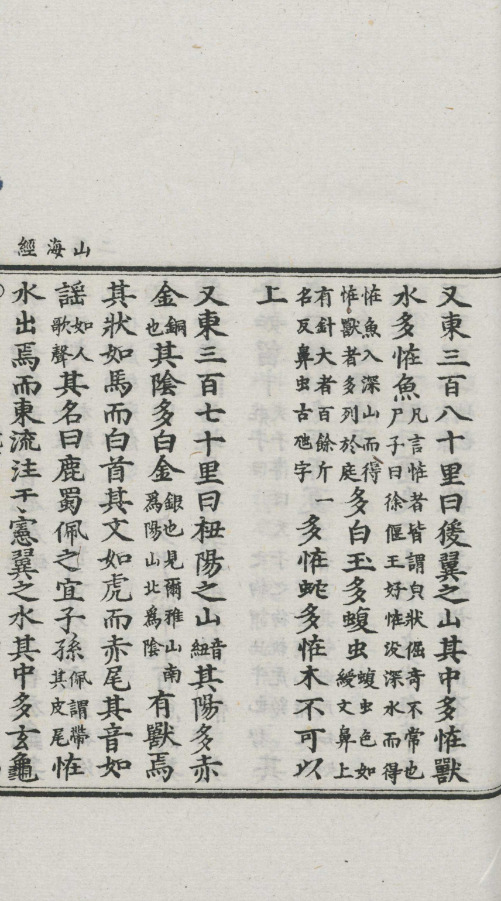 山海經
又東三百八十里曰猨翼之山其中多恠獸
水多恠魚凡言恠者皆謂皃狀倔奇不常也尸子曰徐偃王好恠沒深水而得
恠魚入深山而得恠獸者多列於庭多白玉多蝮虫蝮虫色如綬文鼻上
有針大者百餘斤一名反鼻虫古虺字多恠虵多恠木不可以
上
又東三百七十里曰杻陽之山音紐其陽多赤
金銅也其陰多白金銀也見爾雅山南爲陽山北爲陰有獸焉
其狀如馬而白首其文如虎而赤尾其音如
謠如人歌聲其名曰鹿蜀佩之宜子孫佩謂帶其皮尾恠
水出焉而東流注于憲翼之水其中多玄龜